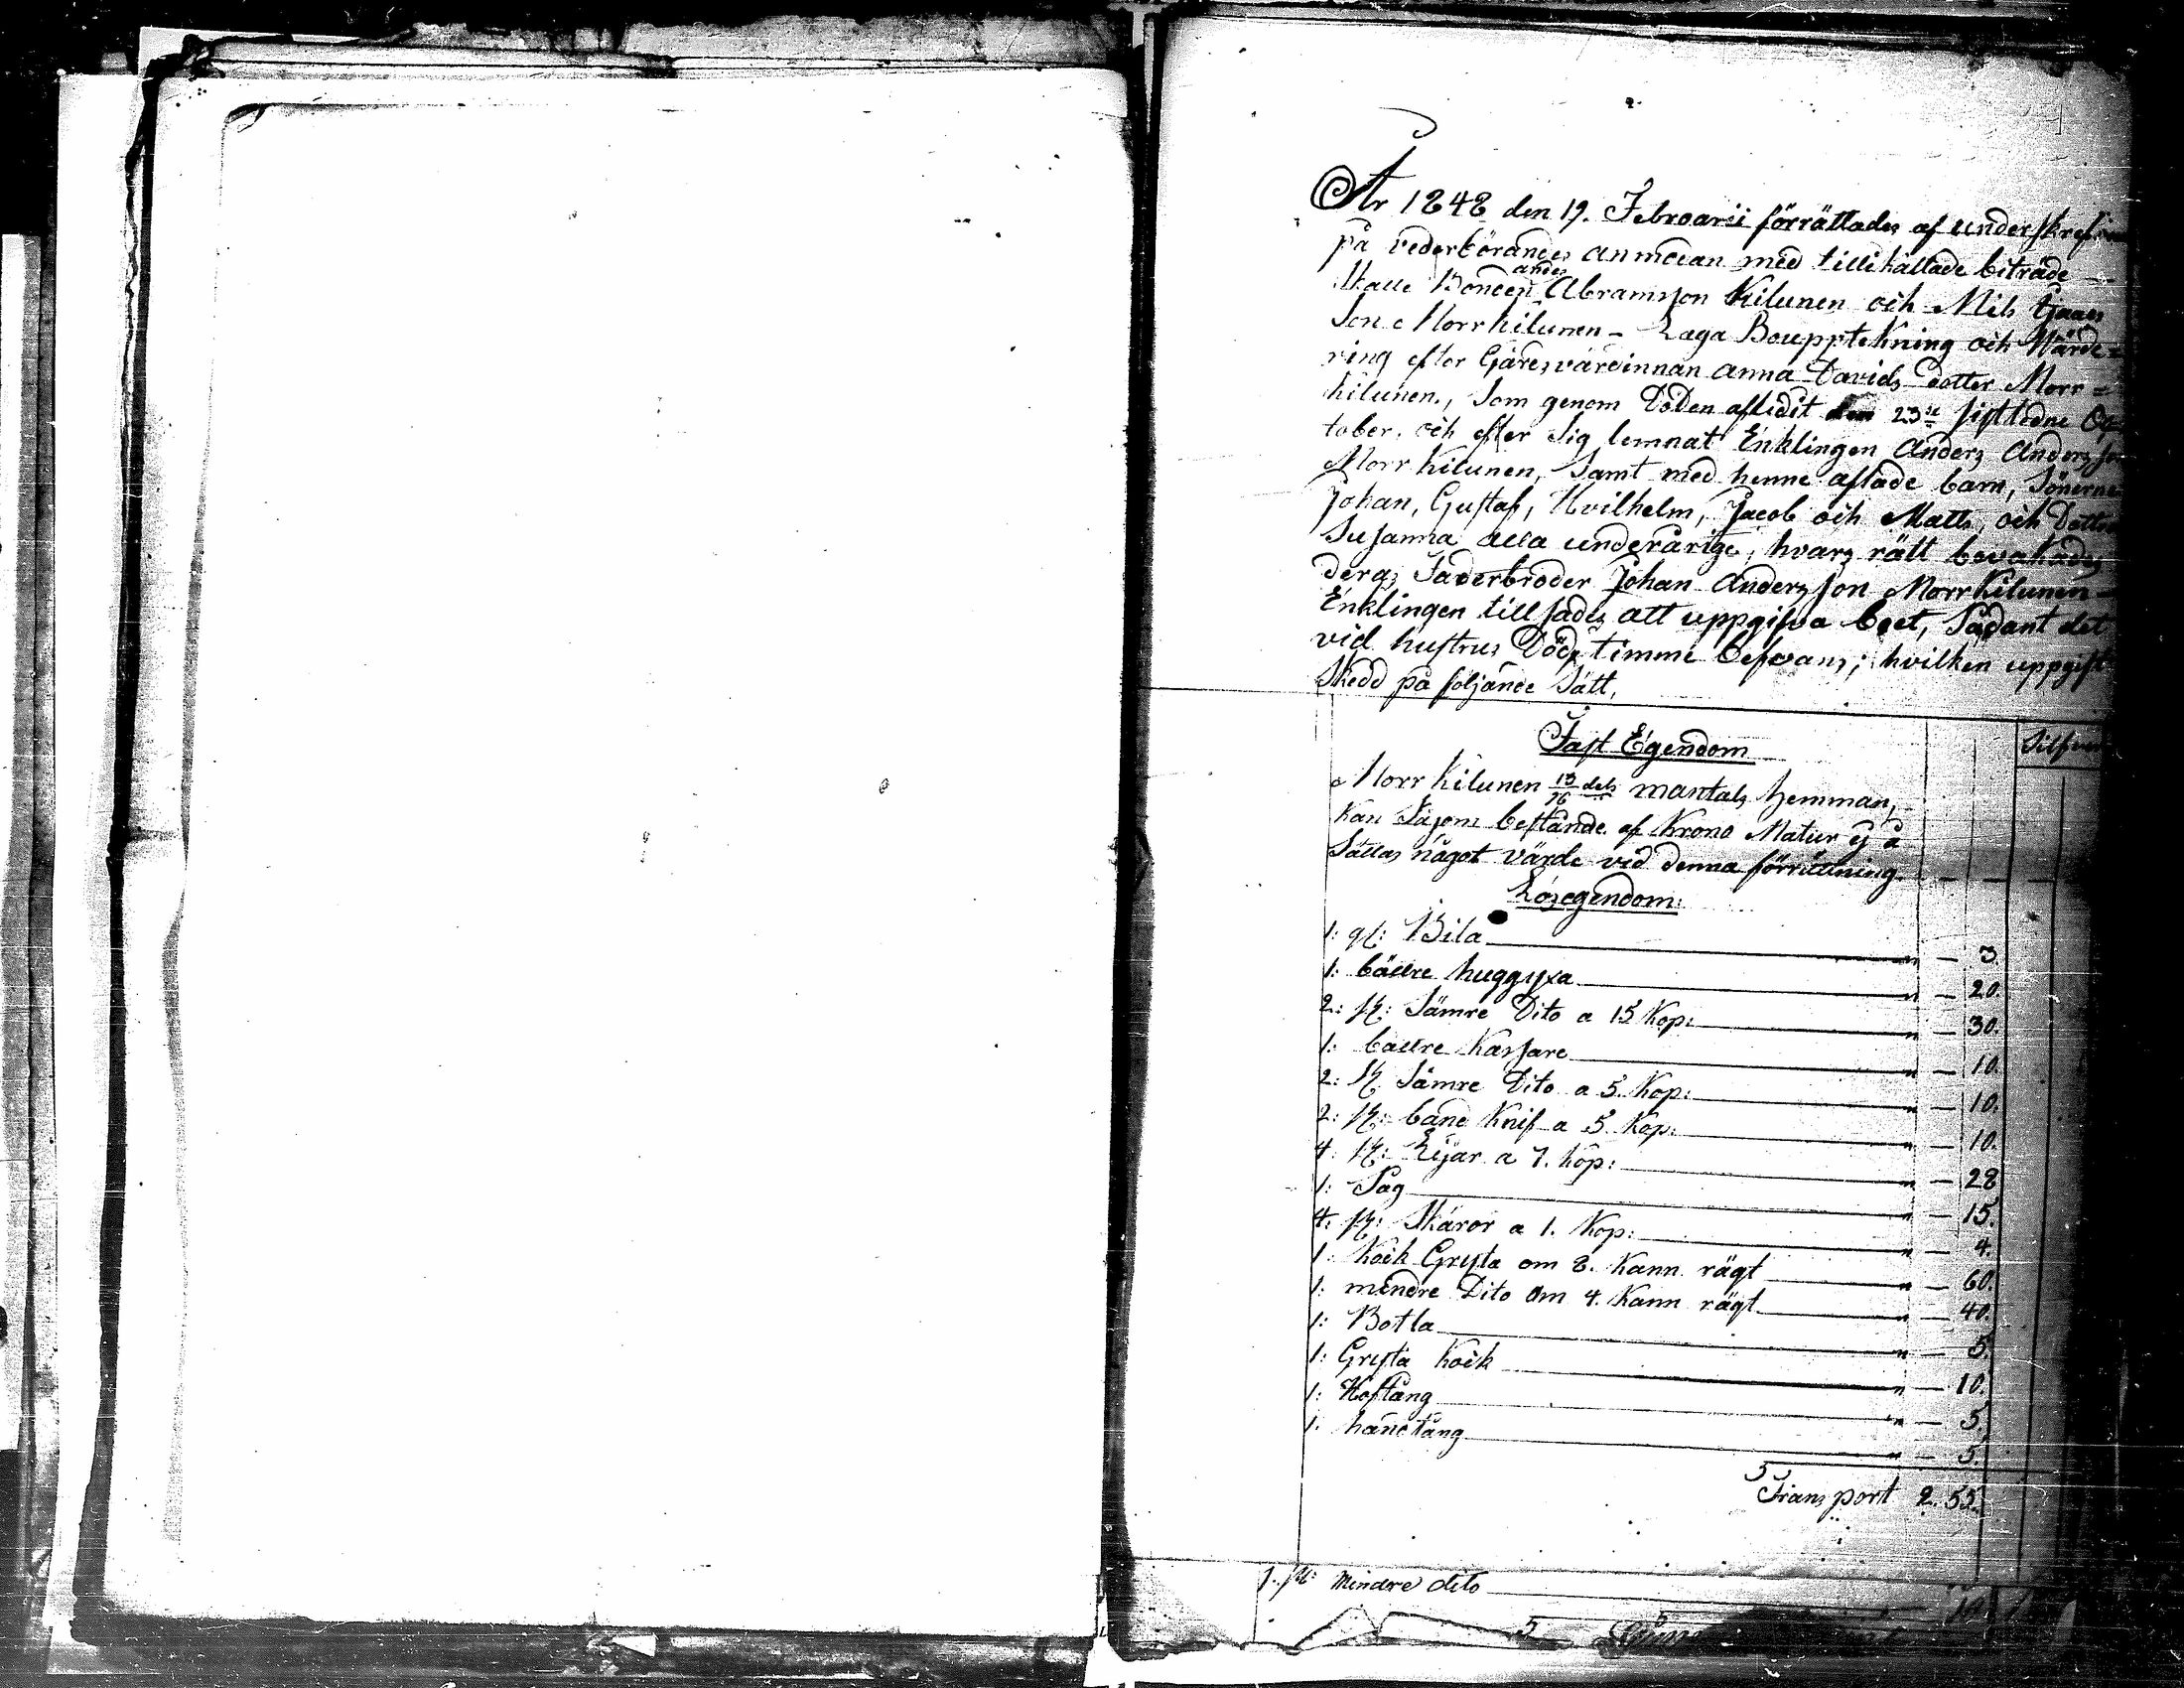 År 1848 den 19. Februarii förrättades af underskrefvne
på vederbörandes anmodan med tillihållade biträde
Skatte Bonden Anders Abramsson Kilunen och Nils
Son Norrkilunen - Laga Bouppteckning och Wärde=
ring efter Gårdsvärdinnan Anna Davids dotter Norr=
kilunen, som genom Döden aflidit den 23de sistledne Oc
tober, och efter sig lemnat Enklingen Anders Anders son
Norrkilunen, samt med henne aflade barn, Sönerne
Johan, Gustaf, Wilhelm, Jacob och Matts, och Dottren
Susanna alla underårige, hvars rätt bevakades
deras Faderbroder Johan Andersson Norrkilunen -
Enklingen tillsades att uppgifva boet, Sådant det
vid hustrus Döds timme befans; hvilken uppgift
Skedd på följande Sätt,
Fast Egendom
Silfver
Norr Kilunen 13/96 dels mantals hemman,
kan Såsom bestånde af Krono Natur ej å
Sättas något värde vid denna förrättning
Lösegendom:
1: gl: Bila " — 3.
1: bättre huggyxa " — 20.
2: st: Sämre Dito a 15 Kop: " — 30.
1: bättre Kassare " — 10.
2: st Sämre Dito a 5. Kop: " — 10.
2: st: band Knif a 5 Kop: " — 10.
4: st: Lijar a 7. kop: " — 28
1: Såg " — 15.
4: st: Skäror a 1. Kop: " — 4.
1: Kock Gryta om 8. Kann rägt " — 60.
1: mindre Dito om 4. Kann rägt " — 40.
1: Botla " — 5.
1: Gryta kock " — 10.
1: Hoftång " — 5.
1. handtång " — 5.
Transport 2. 55.
1. st: Mindre dito